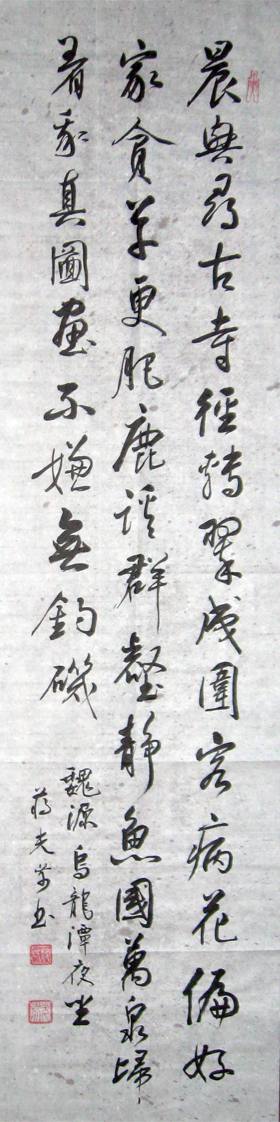 晨興尋古寺徑轉翠成圍客病花偏好
家貧草更肥鹿談群壑靜魚國萬泉歸
看我真圖畫不嫌無釣磯
魏源烏龍潭夜坐